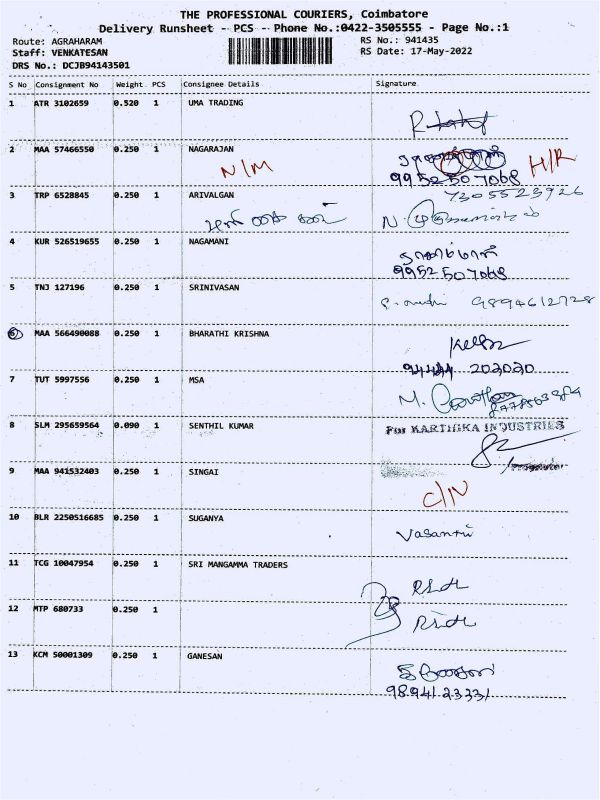 THE PROFESSIONAL COURIERS, Coimbatore
Delivery Runsheet - PCS - Phone No.:0422-3505555 - Page No.:1
Route: AGRAHARAM RS No.: 941435
Staff: VENKATESAN RS Date: 17-May-2022
DRS No.: DCJB94143501
S No Consignment No Weight PCS Consignee Details Signature
1 ATR 3102659 0.520 1 UMA TRADING
2 MAA 57466550 0.250 1 NAGARAJAN
N/M 9952507068 H/R
3 TRP 6528845 0.250 1 ARIVALGAN 7305523926
4 KUR 526519655 0.250 1 NAGAMANI
9952507068
5 TNJ 127196 0.250 1 SRINIVASAN 9894612728
6 MAA 566490088 0.250 1 BHARATHI KRISHNA
202020
7 TUT 5997556 0.250 1 MSA
M.
8 SLM 295659564 0.090 1 SENTHIL KUMAR For KARTHIKA INDUSTRIES
9 MAA 941532403 0.250 1 SINGAI
C/N
10 BLR 2250516685 0.250 1 SUGANYA
Vasanthi
11 TCG 10047954 0.250 1 SRI MANGAMMA TRADERS
12 MTP 680733 0.250 1
13 KCM 50001309 0.250 1 GANESAN
9894123331